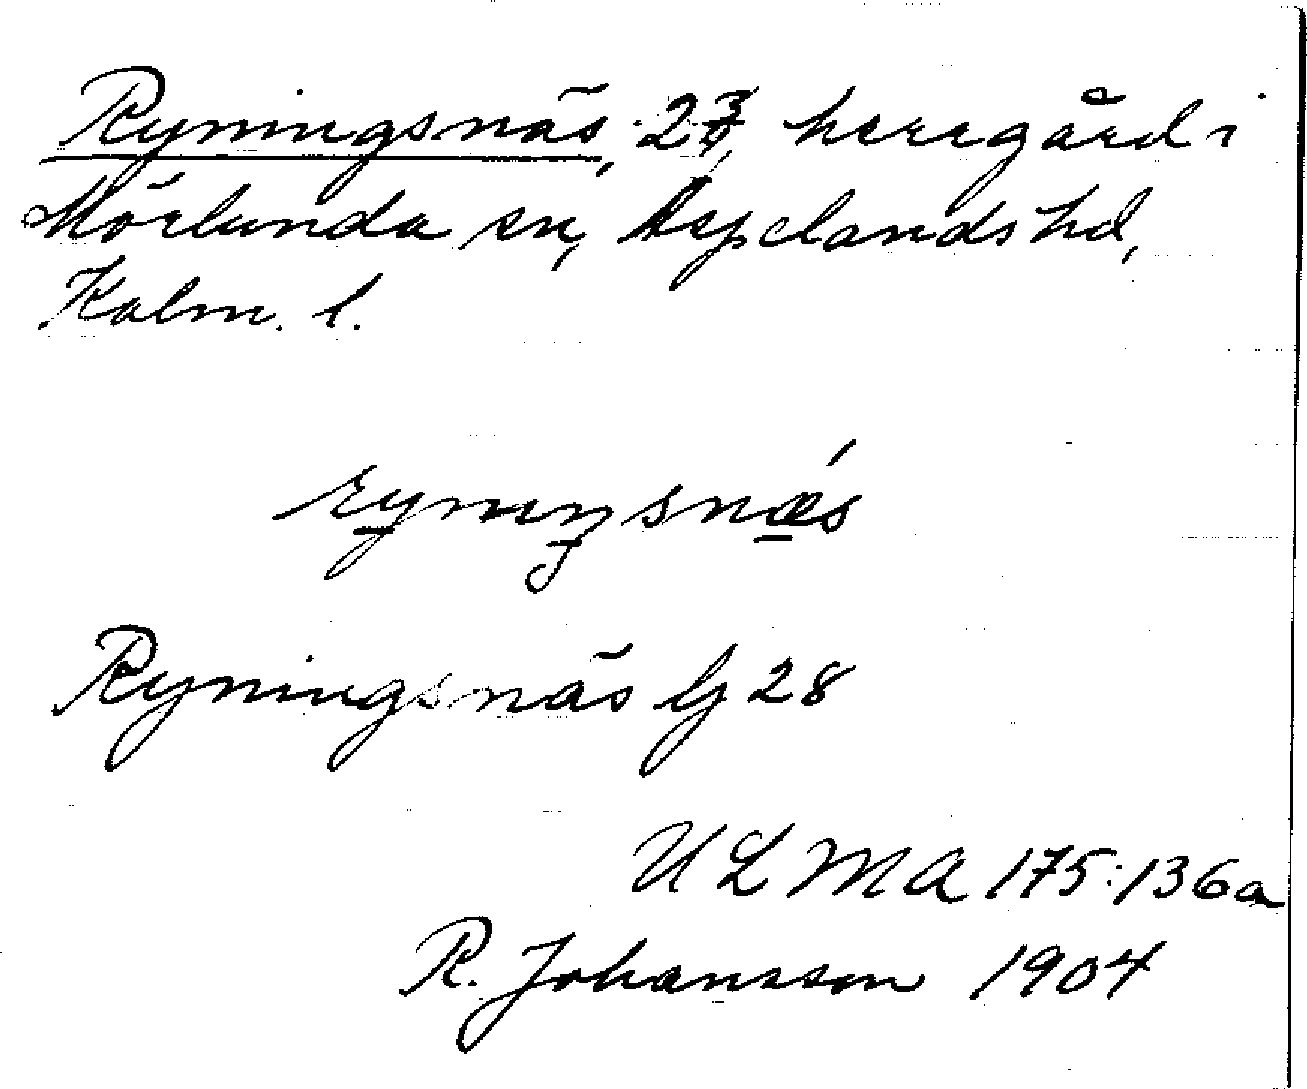 Ryningsnäs, 2 herregård i
Mörlunda sn, Aspelands hd,
Kalm. l.
rynıŋsnǽs
Ryningsnäs G 28
ULMA 175:136a
R. Johansson 1904